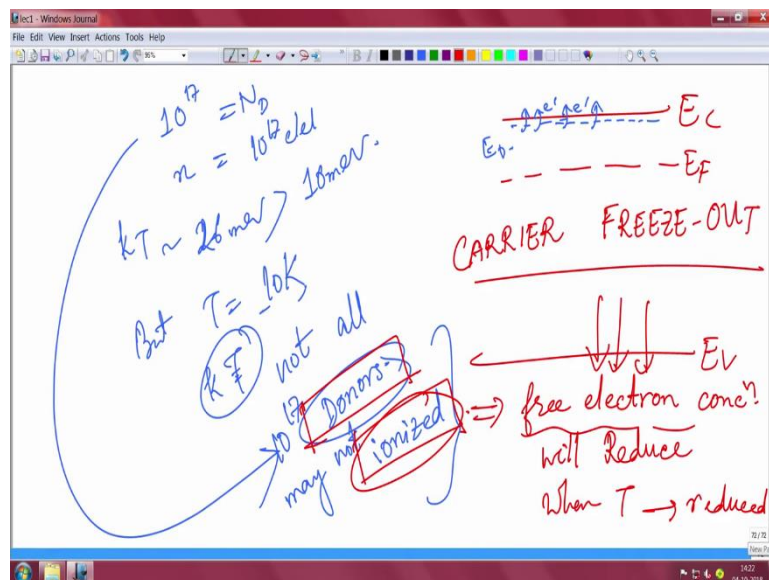 lec1 - Windows Journal
File Edit View Insert Actions Tools Help
10^17 = N_D
n = 10^17 elel
kT ~ 26 mev > 10mev.
But T = 10K
kT not all
10^17 Donors
may not ionized
E_C
E_D
e' e'
E_F
CARRIER FREEZE-OUT
E_V
⇒ free electron conc^n
will Reduce
When T → reduced
72/72
New Pa
14:22
04-10-2018